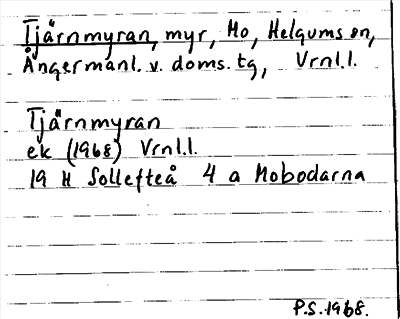 Tjärnmyran, myr, Mo, Helgums sn,
Ångermanl. v. doms. tg, Vrnl.l.
Tjärnmyran
ek (1968) Vrnl.l.
19 H Sollefteå 4 a Mobodarna
P.S. 1968.